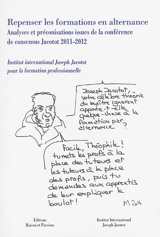 Repenser les formations en alternance
Analyses et préconisations issues de la conférence
de consensus Jacotot 2011-2012
Institut international Joseph Jacotot
pour la formation professionnelle
Joseph Jacotot,
votre célèbre théorie
du maître ignorant
apporte-t-elle
quelque-chose à la
formation par
alternance ?
Facile, Théophile !
tu mets les profs à la
place des tuteurs et
les tuteurs à la
place des profs, puis tu
demandes aux apprentis
de leur expliquer le
boulot !
Editions
Raison et Passions
Institut International
Joseph Jacotot